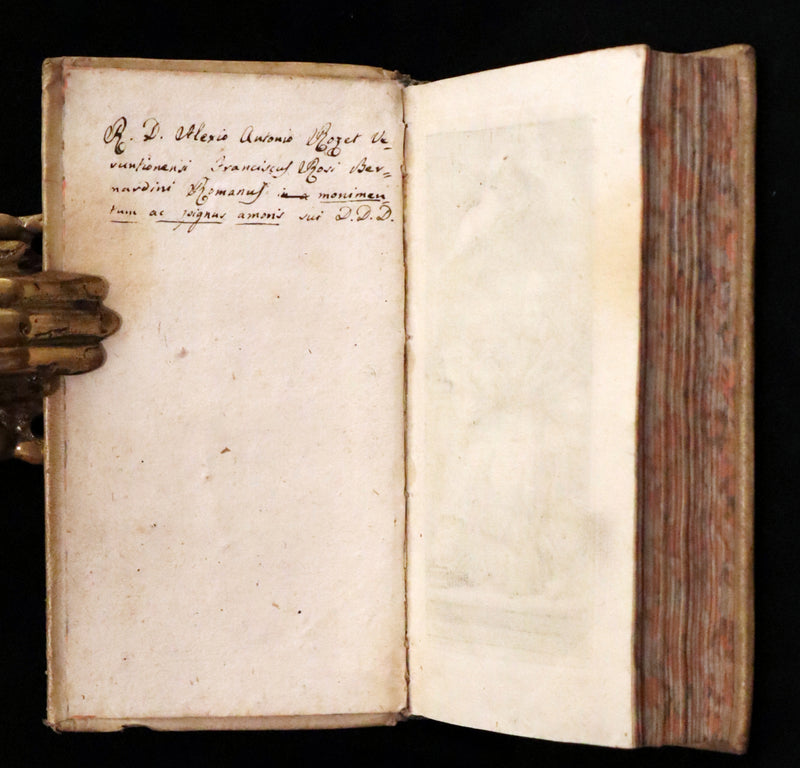 R. D. Alexio Antonio Rozet Ve-
suntionensi Franciscus Rosi Ber-
nardini Romanus monimen-
tum ac pignus amoris sui D.D.D.